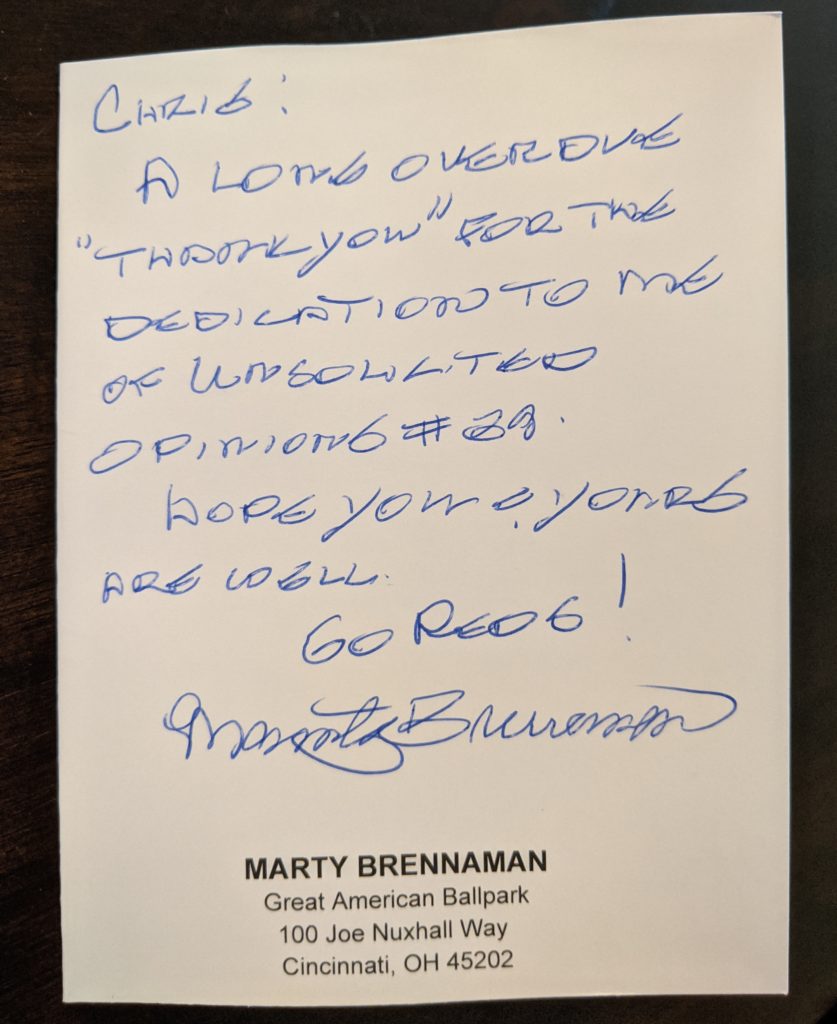 CHRIS:
A LONG OVERDUE
"THANK YOU" FOR THE
DEDICATION TO ME
OF UNSOLICITED
OPINIONS #29.
HOPE YOU & YOURS
ARE WELL.
GO REDS!
Marty Brennaman
MARTY BRENNAMAN
Great American Ballpark
100 Joe Nuxhall Way
Cincinnati, OH 45202